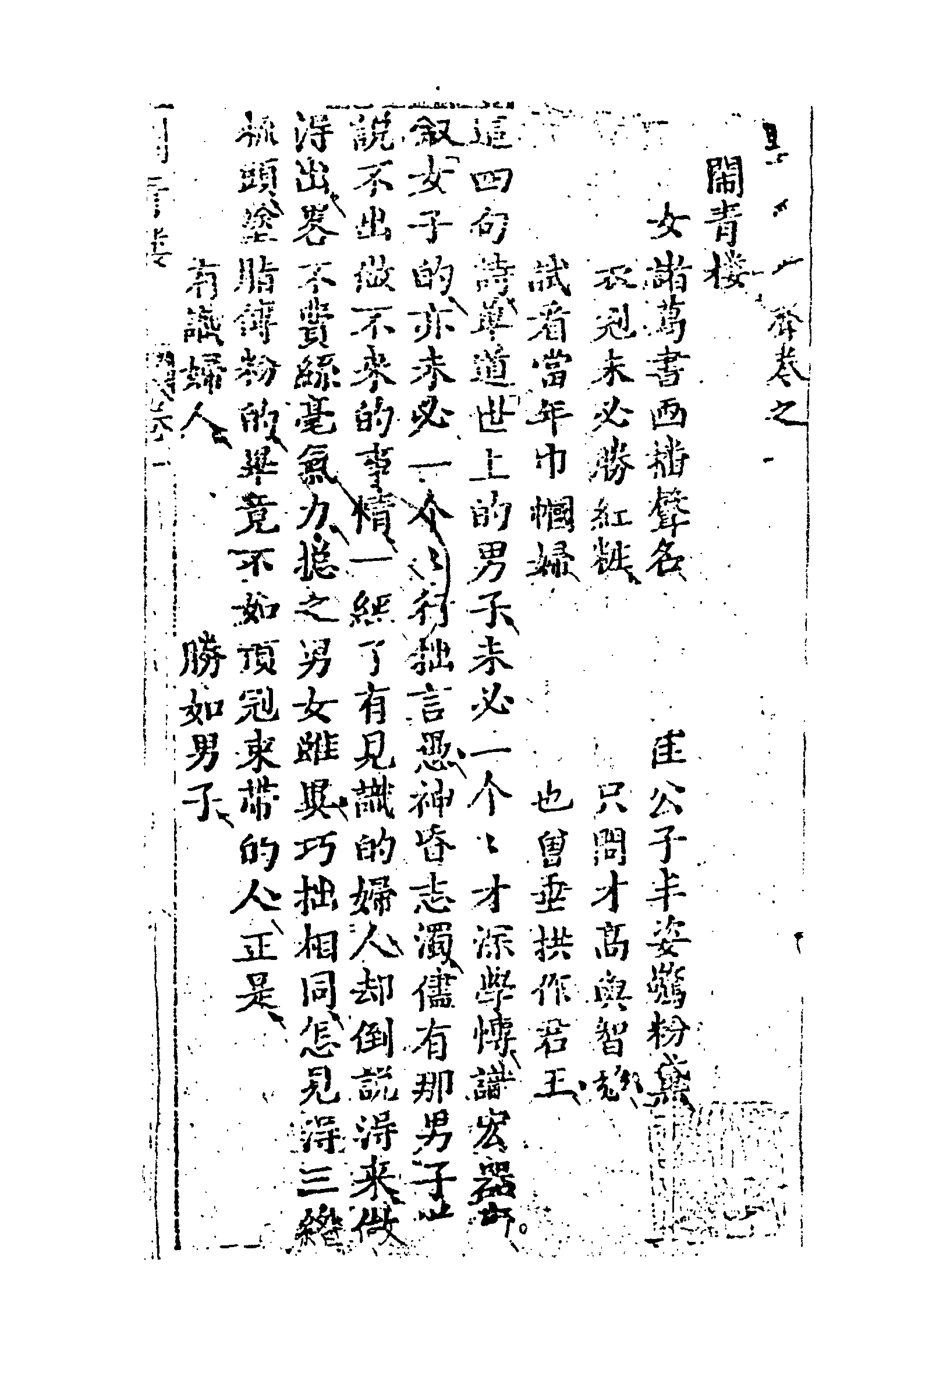 齋卷之一
鬧青樓
女諸葛書西播聲名 佳公子丰姿驚粉黛
衣冠未必勝紅粧 只問才高與智
試看當年巾幗婦 也曾垂拱作君王
這四句詩單道世上的男子未必一个〻才深學博識宏器
叙女子的亦未必一个〻行拙言愚神昏志濁儘有那男子
說不出做不來的事情一經了有見識的婦人却倒說得來做
得出畧不費絲毫氣力總之男女雖異巧拙相同怎見得三綹
梳頭塗脂傅粉的畢竟不如頂冠束帶的人正是
有識婦人 勝如男子
卷一